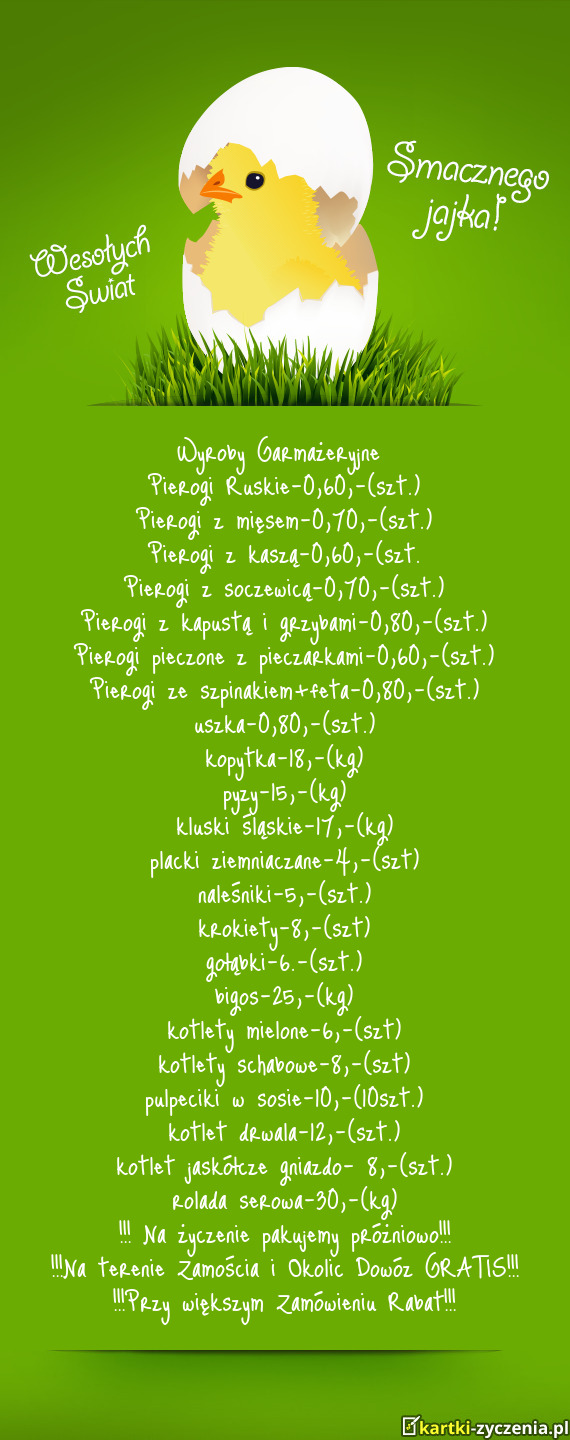 Smacznego
jajka!
Wesołych
Świat
Wyroby Garmażeryjne
Pierogi Ruskie-0,60,-(szt.)
Pierogi z mięsem-0,70,-(szt.)
Pierogi z kaszą-0,60,-(szt.
Pierogi z soczewicą-0,70,-(szt.)
Pierogi z kapustą i grzybami-0,80,-(szt.)
Pierogi pieczone z pieczarkami-0,60,-(szt.)
Pierogi ze szpinakiem+feta-0,80,-(szt.)
uszka-0,80,-(szt.)
kopytka-18,-(kg)
pyzy-15,-(kg)
kluski śląskie-17,-(kg)
placki ziemniaczane-4,-(szt)
naleśniki-5,-(szt.)
krokiety-8,-(szt)
gołąbki-6.-(szt.)
bigos-25,-(kg)
kotlety mielone-6,-(szt)
kotlety schabowe-8,-(szt)
pulpeciki w sosie-10,-(10szt.)
kotlet drwala-12,-(szt.)
kotlet jaskółcze gniazdo- 8,-(szt.)
rolada serowa-30,-(kg)
!!! Na życzenie pakujemy próżniowo!!!
!!!Na terenie Zamościa i Okolic Dowóz GRATIS!!!
!!!Przy większym Zamówieniu Rabat!!!
kartki-zyczenia.pl